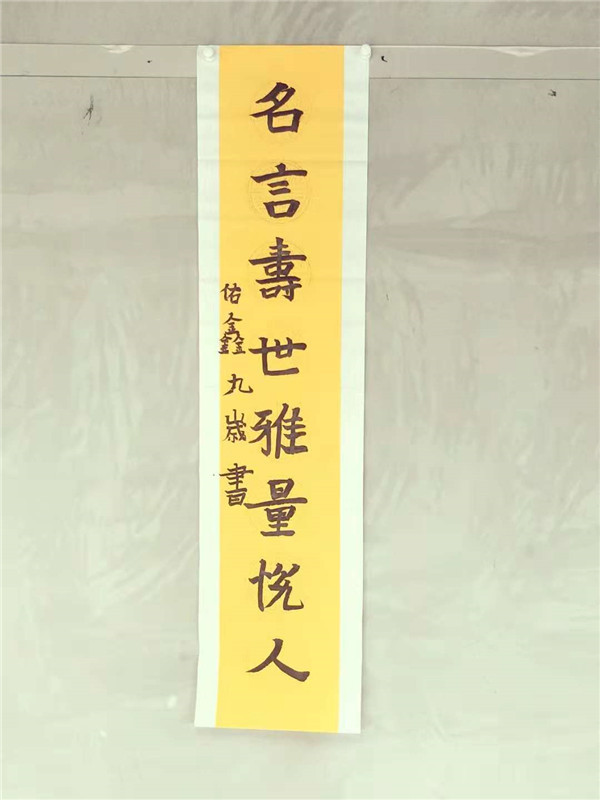 名言壽世雅量悦人
佑鑫九歲書